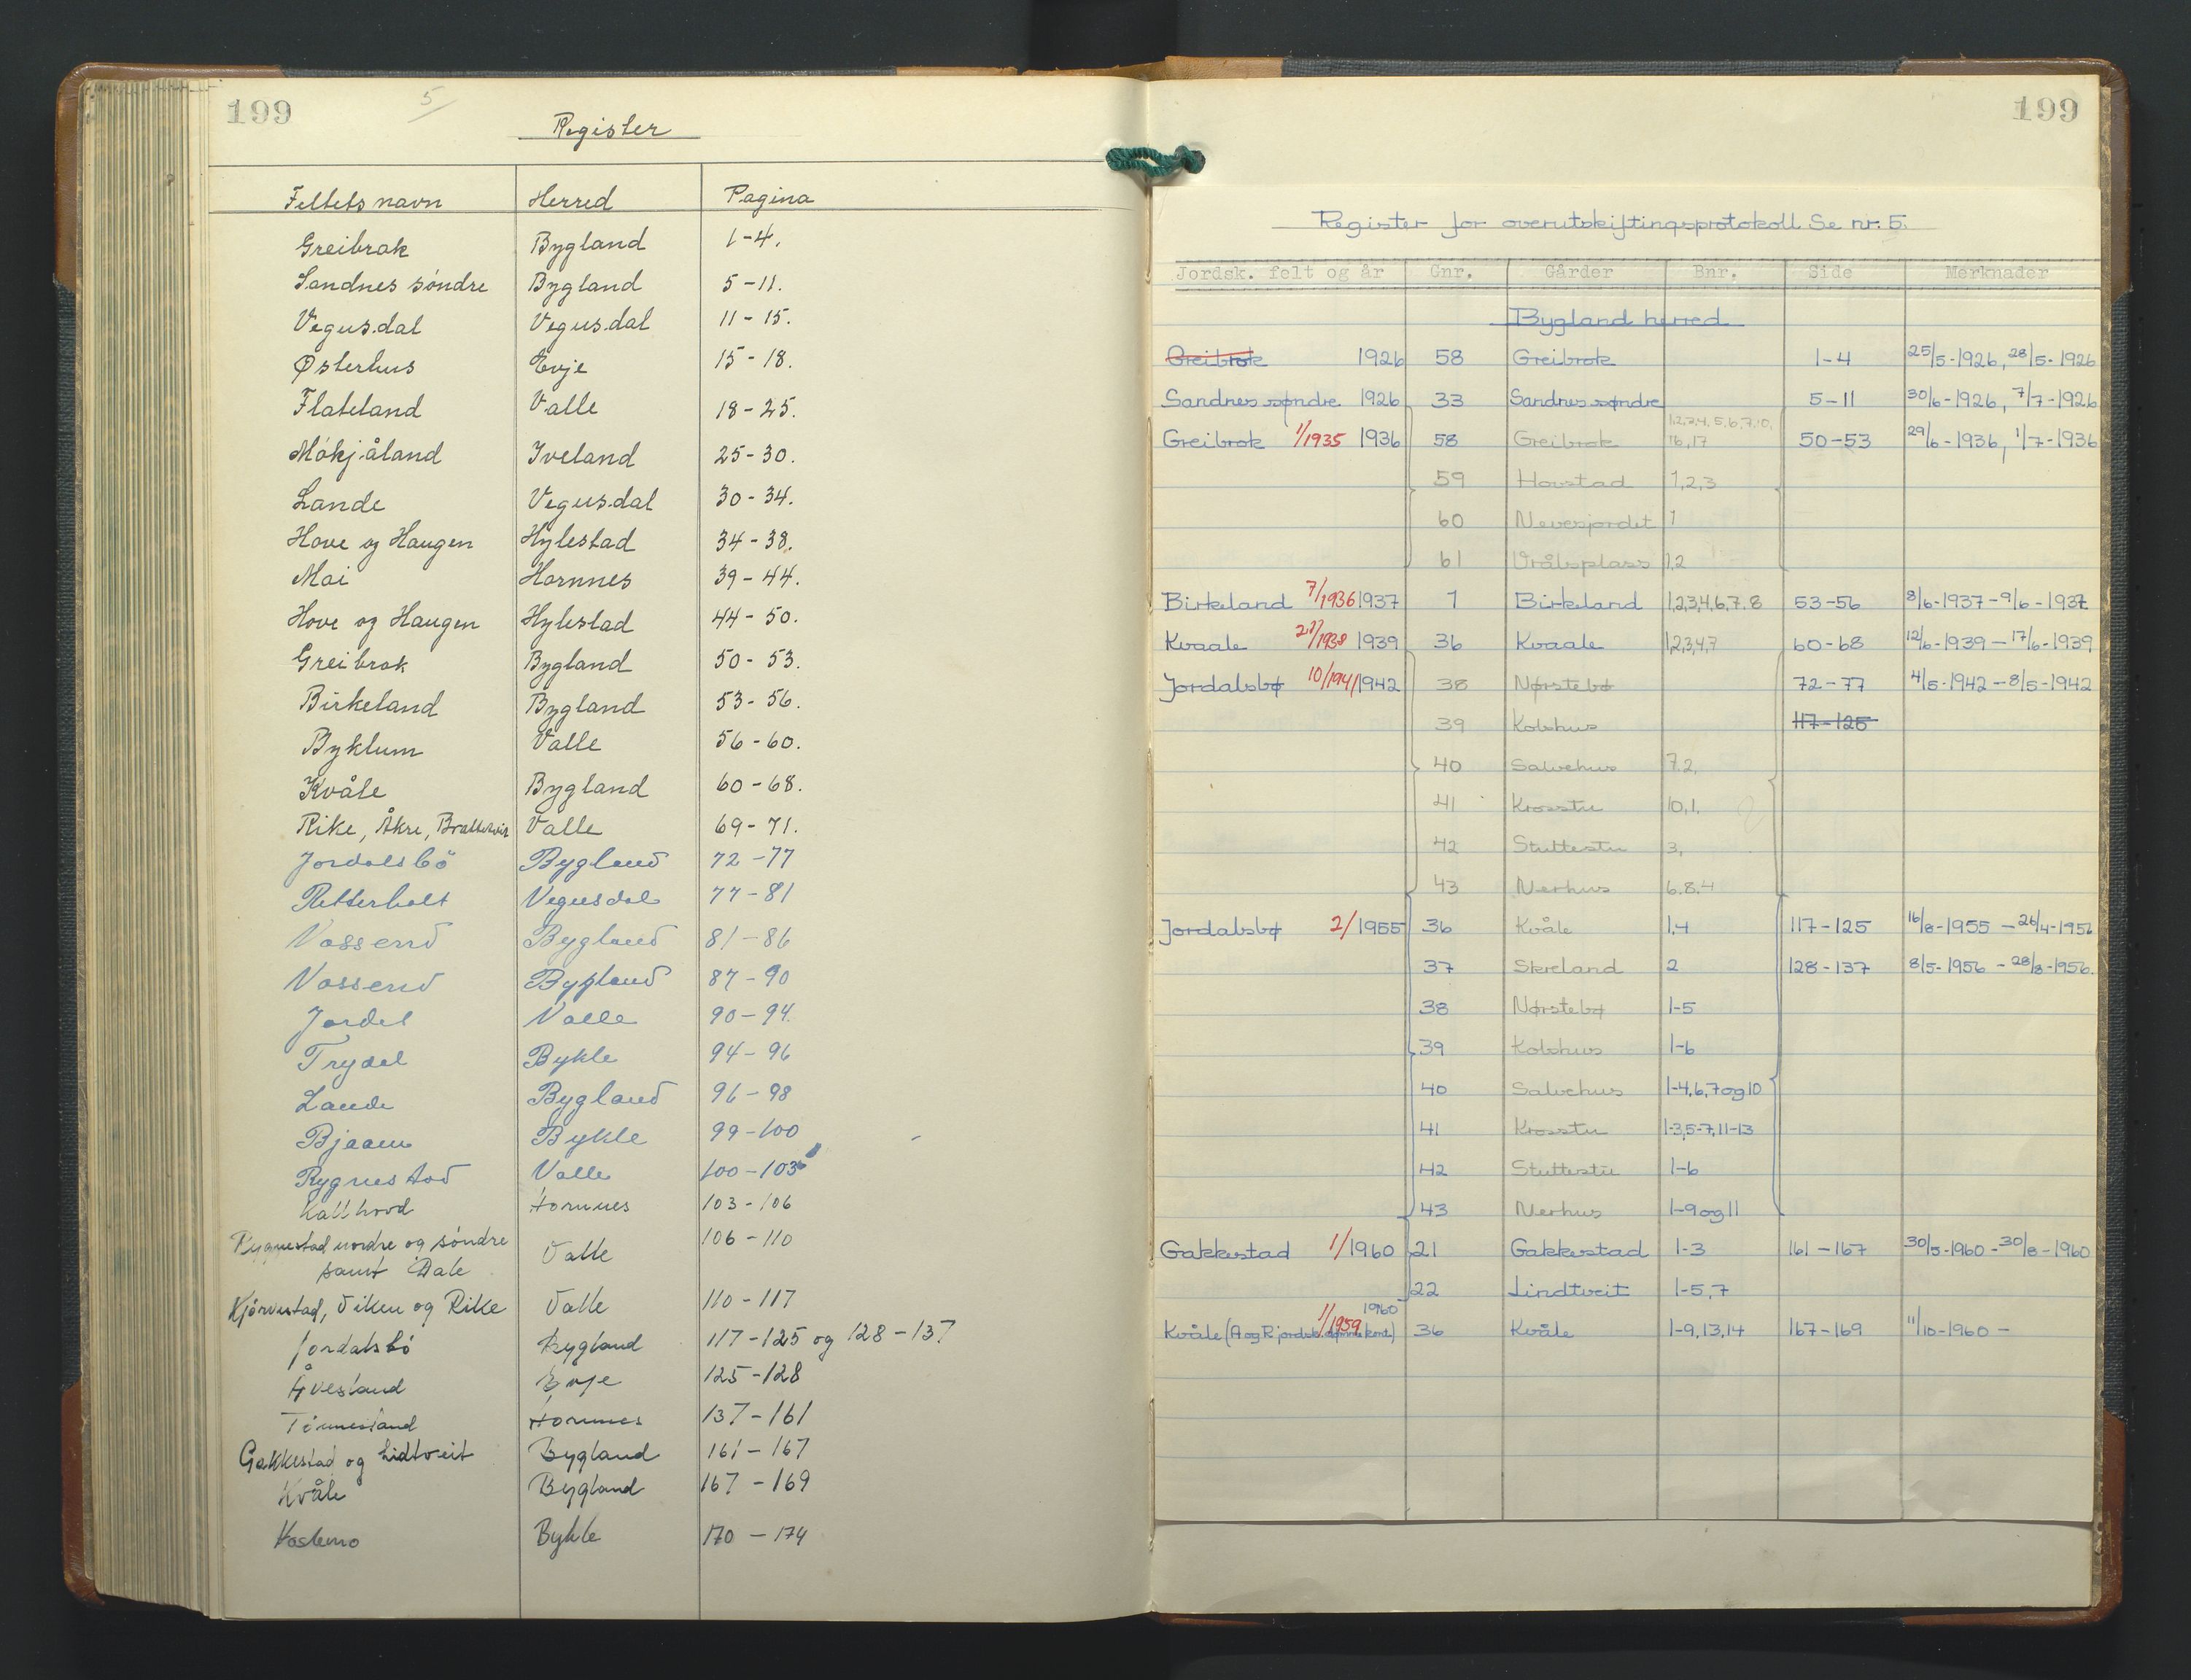 199
5
Register
Feltets navn Herred Pagina
Greibrok Bygland 1-4.
Sandnes søndre Bygland 5-11.
Vegusdal Vegusdal 11-15.
Østerhus Evje 15-18.
Flateland Valle 18-25.
Mókjåland Iveland 25-30.
Lande Vegusdal 30-34.
Hove og Haugen Hylestad 34-38.
Moi Hornnes 39-44.
Hove og Haugen Hylestad 44-50.
Greibrok Bygland 50-53.
Birkeland Bygland 53-56.
Byklum Valle 56-60.
Kvåle Bygland 60-68.
Rike, Åkre, Valle 69-71.
Jordalsbö Bygland 72-77
Retterholt Vegusdal 77-81
Vassend Bygland 81-86
Vassend Bygland 87-90
Jordal Valle 90-94.
Trydal Bykle 94-96
Lande Bygland 96-98
Bjaaen Bykle 99-100
Rygnestad Valle 100-103
Kallhovd Hornnes 103-106
Rygnestad nordre og søndre Valle 106-110
samt Dale
Kjörvestad, Viken og Rike Valle 110-117
Jordalsbó Bygland 117-125 og 128-137
Åvesland Evje 125-128
Tönnesland Hornnes 137-161
Gakkestad og Lidtveit Bygland 161-167
Kvåle Bygland 167-169
Hoslemo Bykle 170-174
199
Register for overutskiftingsprotokoll Se nr. 5.
Jordsk. felt og år Gnr. Gårder Bnr. Side Merknader
Bygland herred
Greibrok 1926 58 Greibrok 1-4 25/5-1926, 28/5-1926
Sandnes søndre 1926 33 Sandnes søndre 5-11 30/6-1926, 7/7-1926
1,2,3,4,5,6,7,10,
Greibrok 1/1935 1936 58 Greibrok 16,17 50-53 29/6-1936, 1/7-1936
59 Hovstad 1,2,3
60 Neversjordet 1
61 Vråbsplass 1,2
Birkeland 7/1936 1937 1 Birkeland 1,2,3,4,6,7,8 53-56 8/6-1937-9/6-1937
Kvaale 27/1938 1939 36 Kvaale 1,2,3,4,7 60-68 12/6-1939-17/6-1939
Jordalsbø 10/1941 1942 38 Nørstebø 72-77 4/5-1942-8/5-1942
39 Kobshus 117-125
40 Salvehus 7,2,
41 Krosstu 10,1.
42 Stuttestu 3,
43 Nerhus 6.8.4
Jordalsbø 2/1955 36 Kvåle 1,4 117-125 16/8-1955-26/4-1956
37 Skreland 2 128-137 8/5-1956-28/8-1956.
38 Nørstebø 1-5
39 Kobshus 1-6
40 Salvehus 1-4,6,7 og 10
41 Krosstu 1-3,5-7,11-13
42 Stuttestu 1-6
43 Nerhus 1-9 og 11
Gakkestad 1/1960 21 Gakkestad 1-3 161-167 30/5-1960-30/8-1960
22 Lindtveit 1-5,7
1960
Kvåle (A og R jordsk. 1/1959 36 Kvåle 1-9,13,14 167-169 11/10-1960-